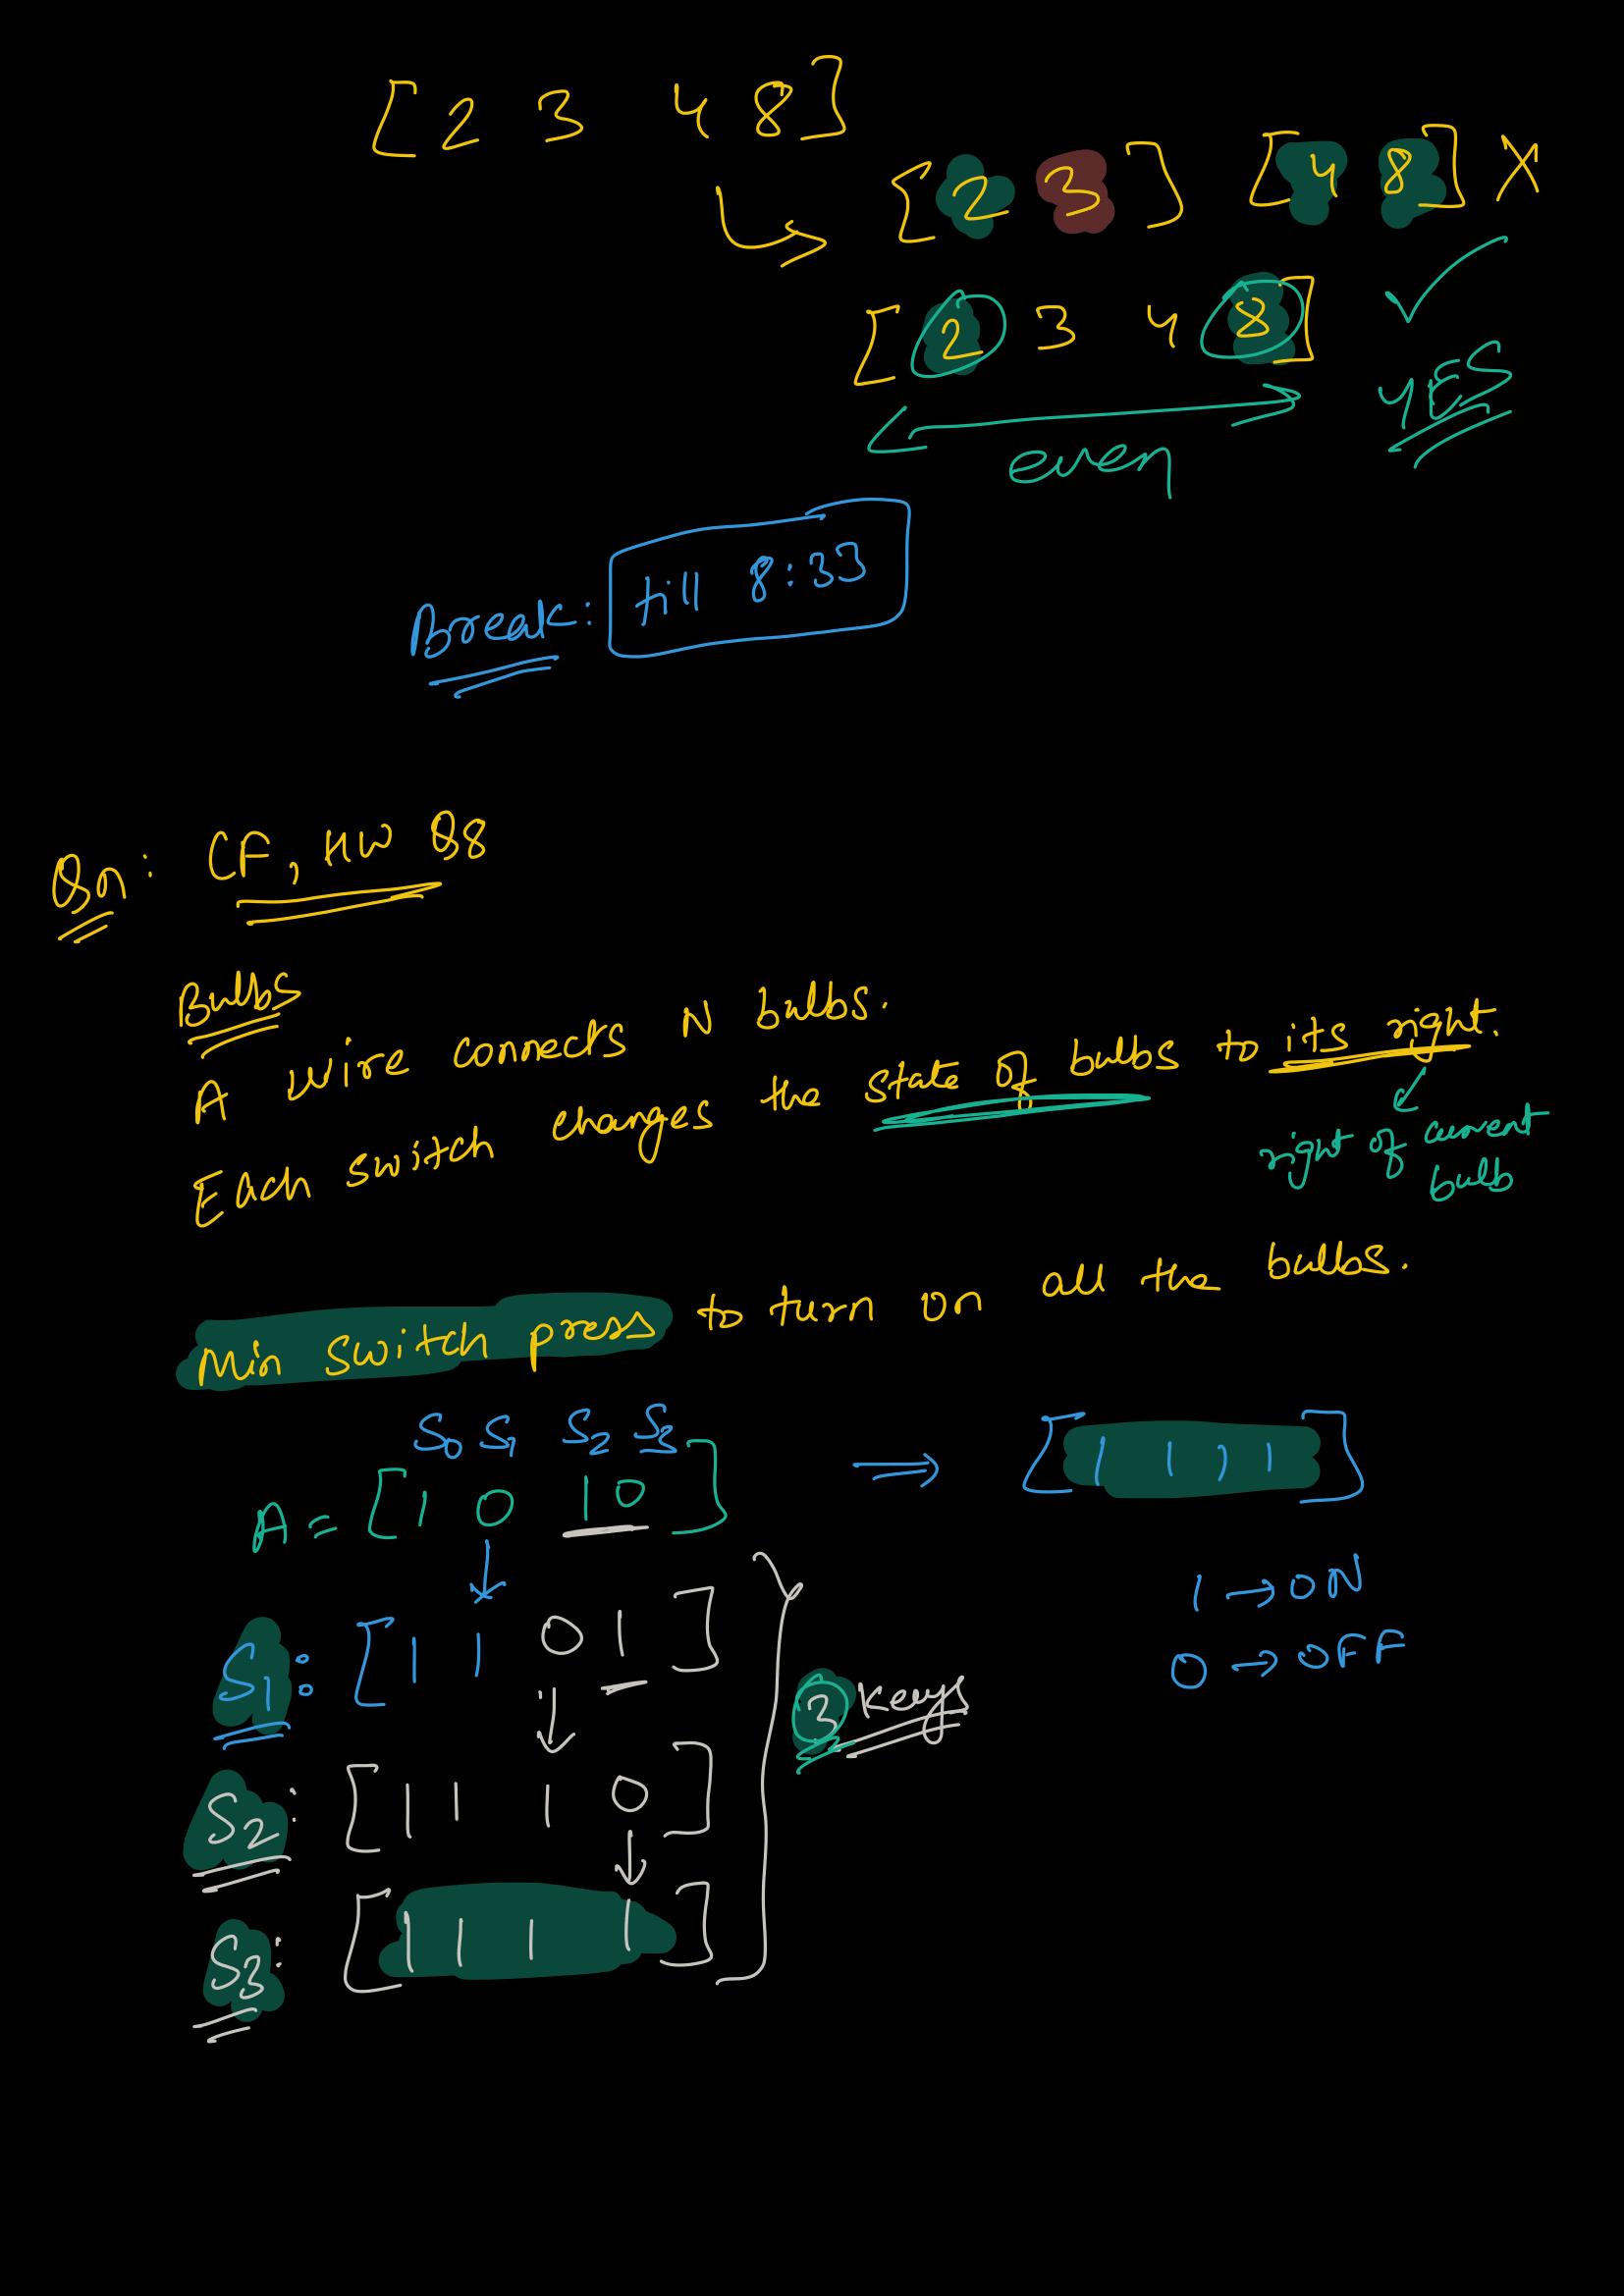 [ 2 3 4 8 ]
[ 2 3 ] [ 4 8 ] X
[ 2 3 4 8 ] ✓
even YES
Break: till 8:33
Qn: CF, HW Q8
Bulbs
A wire connects N bulbs.
Each switch changes the state of bulbs to its right.
right of current
bulb
Min switch press to turn on all the bulbs.
S0 S1 S2 S3
A = [ 1 0 1 0 ] ⇒ [ 1 1 1 1 ]
1 → ON
0 → OFF
S1: [ 1 1 0 1 ]
3 keys
S2: [ 1 1 1 0 ]
S3: [ 1 1 1 1 ]